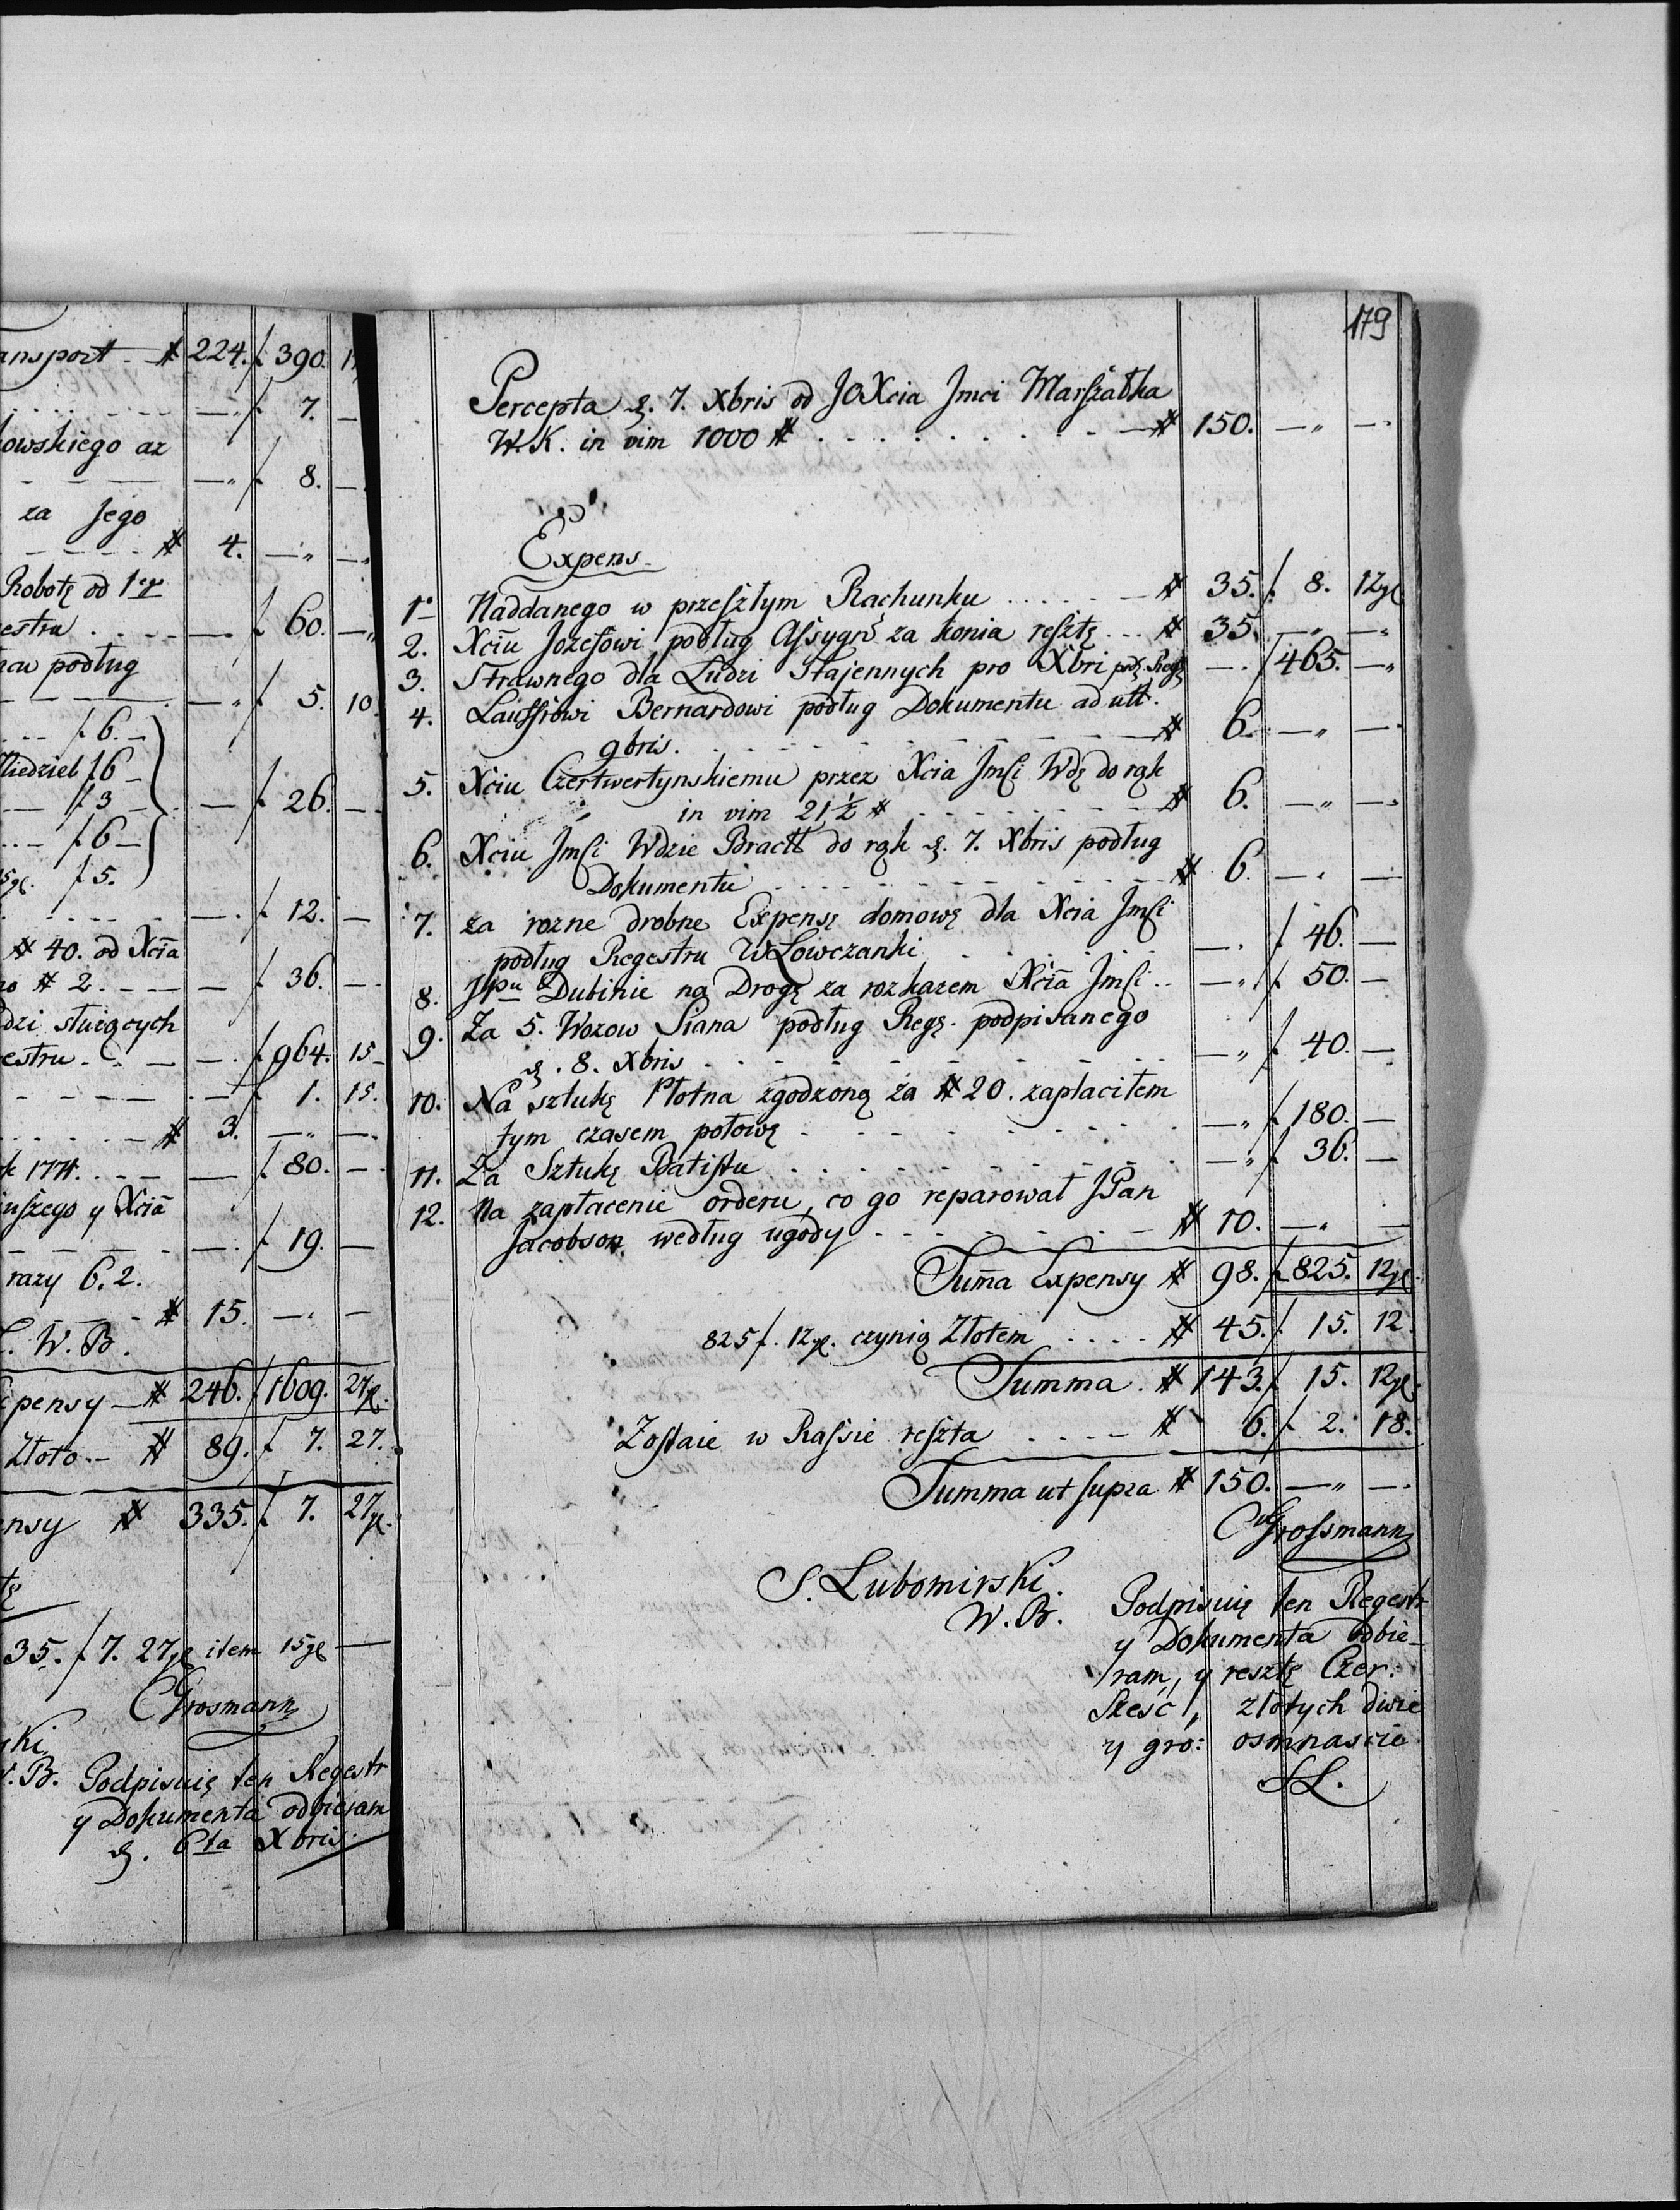 ansport # 224. f 390.
— f 7. —
owskiego az
— f 8. —
za Jego
# 4. — —
Robotę od 1go
estru — f 60. —
podług
— f 5. 10
f 6. —
Niedziel f 6 —
f 3 — — f 26. —
f 6 —
f 5.
— f 12. —
# 40. od Xcia
# 2. — f 36. —
dzi słuzących
estru — f 964. 15
— f 1. 15.
# 3. — —
1774. — f 80. —
uszego y Xcia
— f 19. —
razy 6. 2.
# 15. — —
W. B.
pensy # 246. f 1609. 27 gl.
Złoto # 89. f 7. 27.
ensy # 335. f 7. 27 gl.
35. f 7. 27 gl item 15 gl —
CGrosmann
ki
W. B. Podpisuię ten Regestr
y Dokumenta odbieram
d. 6ta Xbris.
179
Percepta d. 7. Xbris od JOXcia Jmci Marszałka
W. K. in vim 1000 # # 150. — —
Expens
1o Naddanego w przeszłym Rachunku # 35. f 8. 12 gl
2. Xciu Jozefowi podług Assygn za konia resztę # 35. — —
3. Strawnego dla Ludzi Stajennych pro Xbri — f 465. —
4. Laussiowi Bernardowi podług Dokumentu ad ult.
9bris. # 6. — —
5. Xciu Czertwertynskiemu przez Xcia Jmsi Wdę do rąk
in vim 21 1/2 # # 6. — —
6. Xciu Jmsi Wdzie Bractt do rąk d. 7. Xbris podług
Dokumentu # 6. — —
7. za rozne drobne Expensę domowę dla Xcia Jmsi
podług Regestru WŁowczanki — f 46. —
8. JPu Dubinie na Drogę za rozkazem Xcia Jmsi — f 50. —
9. Za 5. Wozow Siana podług Regę. podpisanego
d. 8. Xbris — f 40. —
10. Na sztukę Płotna zgodzoną za # 20. zapłaciłem
tym czasem połowę — f 180. —
11. Za Sztukę Batistu — f 36. —
12. Na zapłacenie orderu, co go reparował JPan
Jacobson według ugody # 10. — —
Suma Expensy # 98. f 825. 12 gl.
825 f. 12 gl. czynią Złotem # 45. f 15. 12
Summa # 143. f 15. 12 gl.
Zostaie w Kassie reszta # 6. f 2. 18.
Summa ut supra # 150. — —
CGrossmann
S. Lubomirski.
W. B.
Podpisuię ten Regestr
y Dokumenta odbie-
ram, y resztę Czer:
Sześć, złotych dwie
y gro: osmnascie
SL.